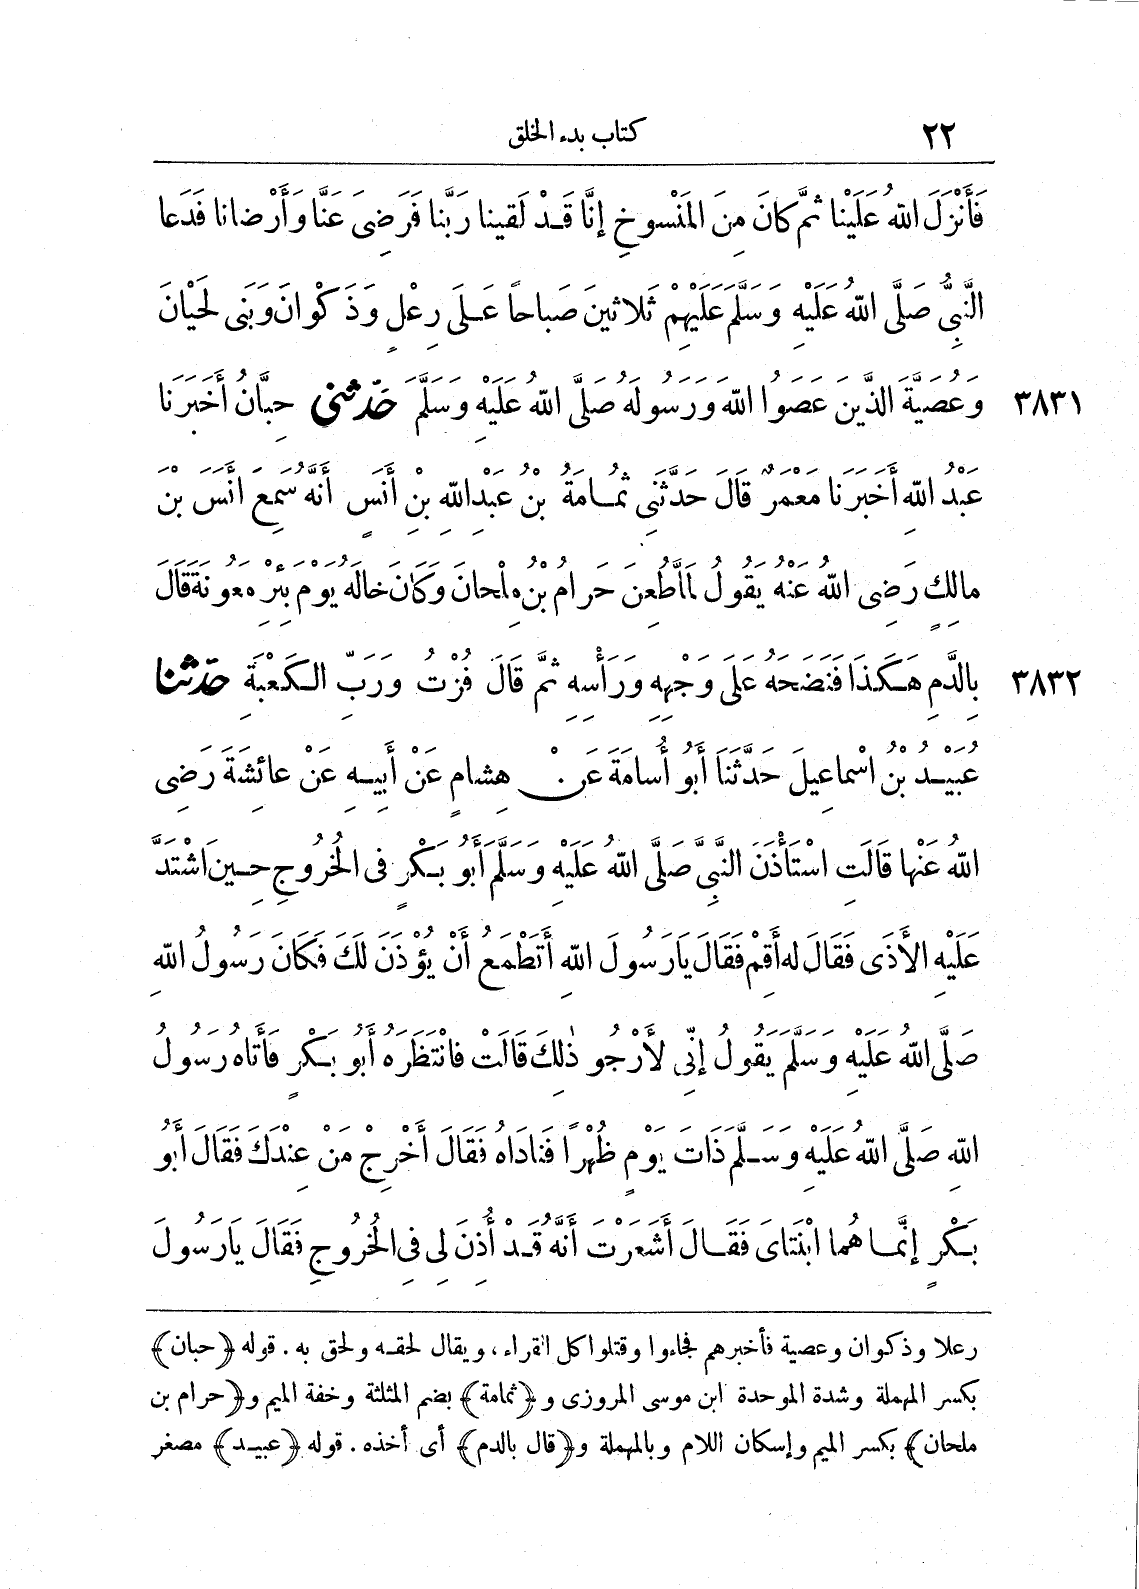 ٢٢ كتاب بدء الخلق
فَأَنْزَلَ اللهُ عَلَيْنا ثُمَّ كانَ مِنَ المَنْسوخِ إِنَّا قَـدْ لَقينا رَبَّنا فَرَضِىَ عَنَّا وَأَرْضانا فَدَعا
النَّبِىُّ صَلَّى اللهُ عَلَيْهِ وَسَلَّمَ عَلَيْهِمْ ثَلاثينَ صَباحاً عَـلَى رِعْلٍ وَذَكْوانَ وَبَنى لَحْيانَ
٣٨٣١ وَعُصَيَّةَ الذَّينَ عَصَوُا اللهَ وَرَسولَهُ صَلَّى اللهُ عَلَيْهِ وَسَلَّمَ حَدّثنى حِبَّانُ أَخْبَرَنا
عَبْدُ اللهِ أَخْبَرَنا مَعْمَرٌ قَالَ حَدَّثَنى ثُمـامَةُ بْنُ عَبْدِاللهِ بْنِ أَنَسٍ أَنَّهُ سَمِعَ أَنَسَ بْنَ
مالِكٍ رَضِىَ اللهُ عَنْهُ يَقُولُ لَمَّا طُعِنَ حَرامُ بْنُ مِلْحانَ وَكَانَ خالَهُ يَوْمَ بِئْرِ مَعونَةَ قالَ
٣٨٣٢ بِالدَّمِ هَـكَذَا فَنَضَحَهُ عَلَى وَجْهِهِ وَرَأْسِهِ ثُمَّ قَالَ فُزْتُ وَرَبِّ الـكَعْبَةِ حَدّثنا
عُبَيْـدُ بْنُ اسْماعيلَ حَدَّثَنَا أَبُو أُسامَةَ عَنْ هِشامٍ عَنْ أَبيـهِ عَنْ عائِشَةَ رَضِىَ
اللهُ عَنْها قَالَتِ اسْتَأْذَنَ النَّبِىَّ صَلَّى اللهُ عَلَيْهِ وَسَلَّمَ أَبُو بَـكْرٍ فى الخُرُوجِ حِـينَ اشْتَدَّ
عَلَيْهِ الأَذَى فَقَالَ لَهُ أَقِمْ فَقَالَ يَا رَسُولَ اللهِ أَتَطْمَعُ أَنْ يُؤْذَنَ لَكَ فَكَانَ رَسُولُ اللهِ
صَلَّى اللهُ عَلَيْهِ وَسَلَّمَ يَقُولُ إِنِّى لَأَرْجُو ذٰلِكَ قَالَتْ فَانْتَظَرَهُ أَبُو بَـكْرٍ فَأَتاهُ رَسُولُ
اللهِ صَلَّى اللهُ عَلَيْهِ وَسَـلَّمَ ذَاتَ يَوْمٍ ظُهْراً فَنَادَاهُ فَقَالَ أَخْرِجْ مَنْ عِنْدَكَ فَقَالَ أَبُو
بَـكْرٍ إِنَّمـا هُما ابْنَتَاىَ فَقَـالَ أَشَعَرْتَ أَنَّهُ قَـدْ أُذِنَ لِى فِى الخُرُوجِ فَقَالَ يَا رَسُولَ
رعلا وذكوان وعصية فأخبرهم فجاءوا وقتلوا كل القراء، ويقال لحقـه ولحق به. قوله ﴿حبان﴾
بكسر المهملة وشدة الموحدة ابن موسى المروزى و﴿ثمامة﴾ بضم المثلثة وخفة الميم و﴿حرام بن
ملحان﴾ بكسر الميم وإسكان اللام وبالمهملة و﴿قال بالدم﴾ أى أخذه. قوله ﴿عبيـد﴾ مصغر